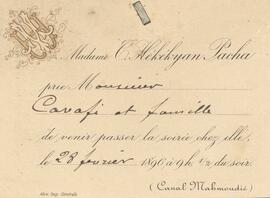 Madame C. Hékékyan Pacha
prie Monsieur
Cavafi et famille
de venir passer la soirée chez elle,
le 28 février 1896 à 9h. 1/2 du soir.
(Canal Mahmoudié)
Alex. Imp. Générale